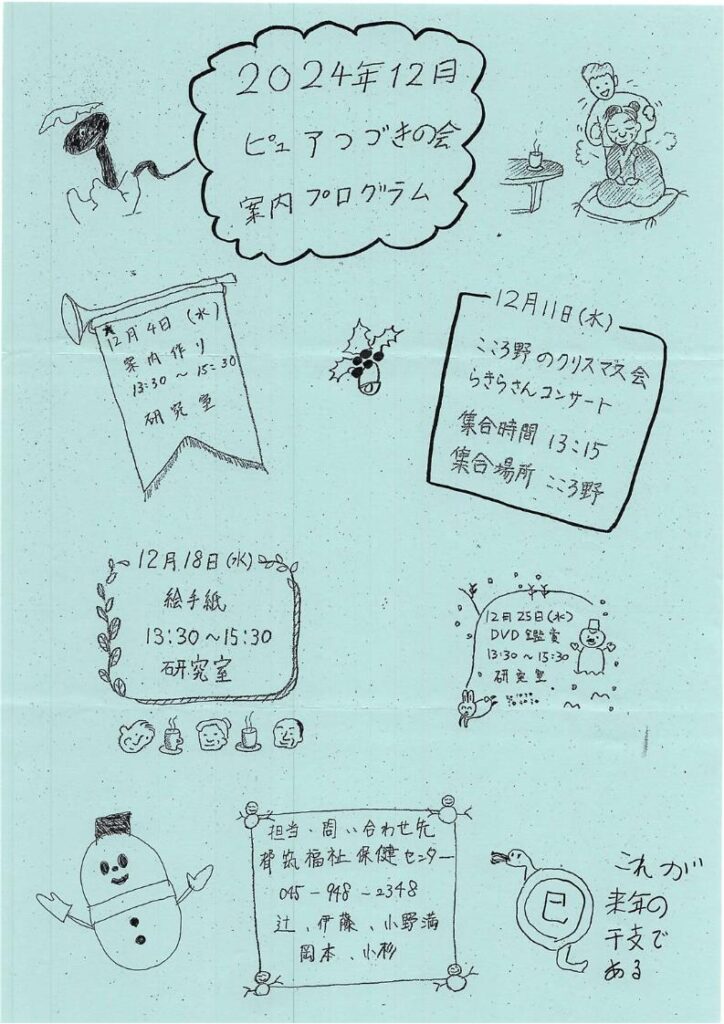 2024年12月
ピュアつづきの会
案内プログラム
12月4日(水)
案内作り
13:30~15:30
研究室
12月11日(水)
こころ野のクリスマス会
らきらさんコンサート
集合時間 13:15
集合場所 こころ野
12月18日(水)
絵手紙
13:30~15:30
研究室
12月25日(水)
DVD鑑賞
13:30~15:30
研究室
担当、問い合わせ先
都筑福祉保健センター
045-948-2348
辻、伊藤、小野満
岡本、小杉
巳
これが
来年の
干支で
ある